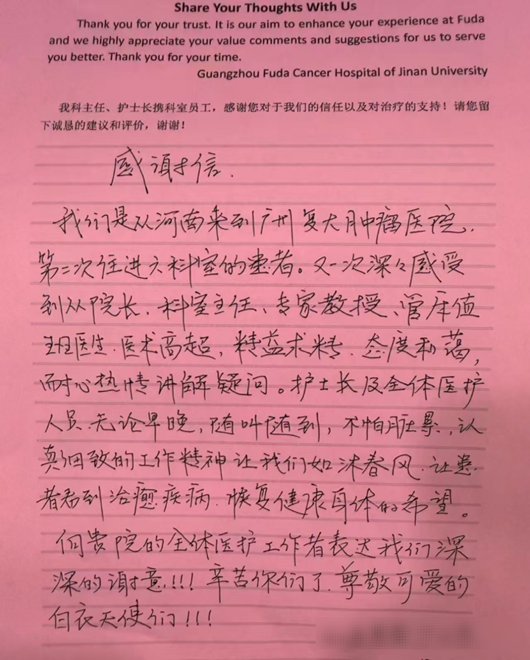 Share Your Thoughts With Us
Thank you for your trust. It is our aim to enhance your experience at Fuda
and we highly appreciate your value comments and suggestions for us to serve
you better. Thank you for your time.
Guangzhou Fuda Cancer Hospital of Jinan University
我科主任、护士长携科室员工，感谢您对于我们的信任以及对治疗的支持！请您留
下诚恳的建议和评价，谢谢！
感谢信.
我们是从河南来到广州复大肿瘤医院.
第二次住进六科室的患者。又一次深々感受
到从院长.科室主任、专家教授、管床值
班医生.医术高超，精益求精.态度和蔼，
耐心热情讲解疑问。护士长及全体医护
人员.无论早晚，随叫随到，不怕脏累.认
真细致的工作精神让我们如沐春风.让患
者看到治癒疾病.恢复健康身体的希望。
向贵院的全体医护工作者表达我们深
深的谢意!!!辛苦你们了.尊敬可爱的
白衣天使们!!!